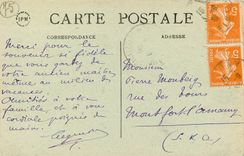 75
CARTE POSTALE
CORRESPONDANCE
ADRESSE
Merci pour le
souvenir si fidèle
que vous gardez de
votre ancien maître
même au milieu des
vacances.
Amitiés à votre
famille et à vous
cordiale poignée
de main.
Monsieur
Pierre Monbeig
rue des Tours
Montfort l'Amaury
(S. & O.)